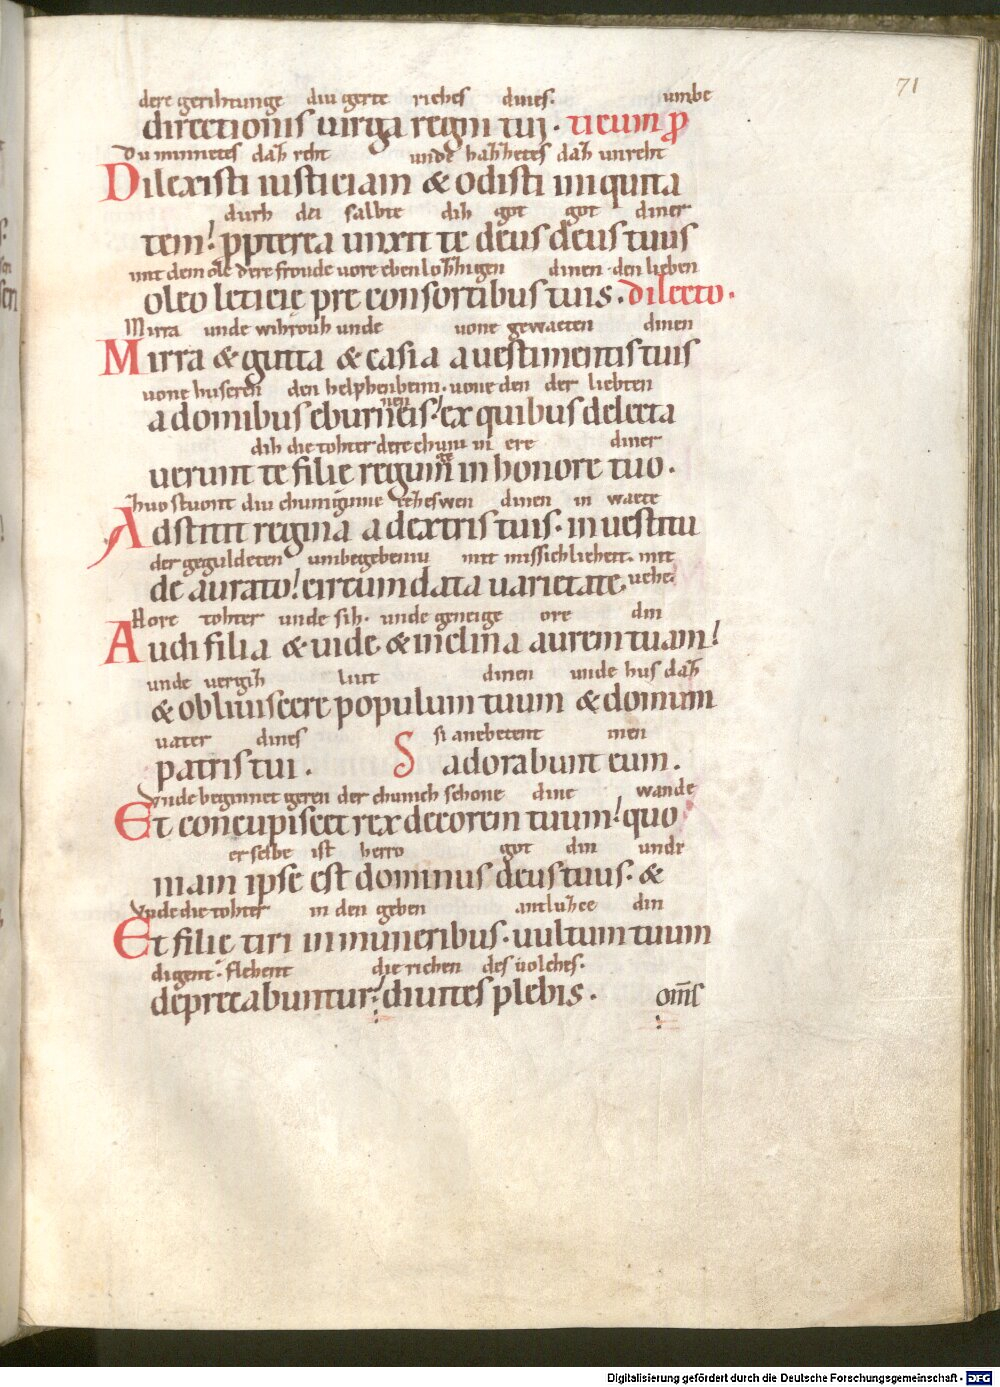 71
dere gerihtunge diu gerte riches dines. umbe
directionis uirga regni tui. ueum p
Du minnetes dah reht unde hahhetes dah unreht
Dilexisti iusticiam & odisti iniquita
durh da salbte dih got got diner
tem! ppterea unxit te deus deus tuus
mit dem ole dere froude uore eben lohhigen dinen den lieben
oleo leticie pre consortibus tuis. dilecto.
Mirra unde wihrouh unde uone gewaeten dinen
Mirra & gutta & casia a uestimentis tuis
uone huseren den helphenbeinnen. uone den der liebten
a domibus eburneis! ex quibus delecta
dih die tohter dere chunige in ere diner
uerunt te filie regum in honore tuo.
huo stuont diu chuniginne zeheswen dinen in waete
Adstitit regina a dextris tuis. in uestitu
der geguldeten umbegebeniu mit missichlicheit. mit
de aurato! circumdata uarietate uehe
Hore tohter unde sih. unde geneige ore din
Audi filia & uide & inclina aurem tuam!
unde uergih liut dinen unde hus dah
& obliuiscere populum tuum & domum
uater dines si anebetent inen
patris tui. S adorabunt eum.
Vnde beginnet geren der chunich schone dine wande
Et concupiscet rex decorem tuum! quo
er selbe ist herro got din unde
niam ipse est dominus deus tuus. &
Vnde die tohter in den geben antluhce din
Et filie tiri in muneribus. uultum tuum
digent. flehent die richen des uolches.
deprecabuntur! diuites plebis. oms
Digitalisierung gefördert durch die Deutsche Forschungsgemeinschaft - DFG